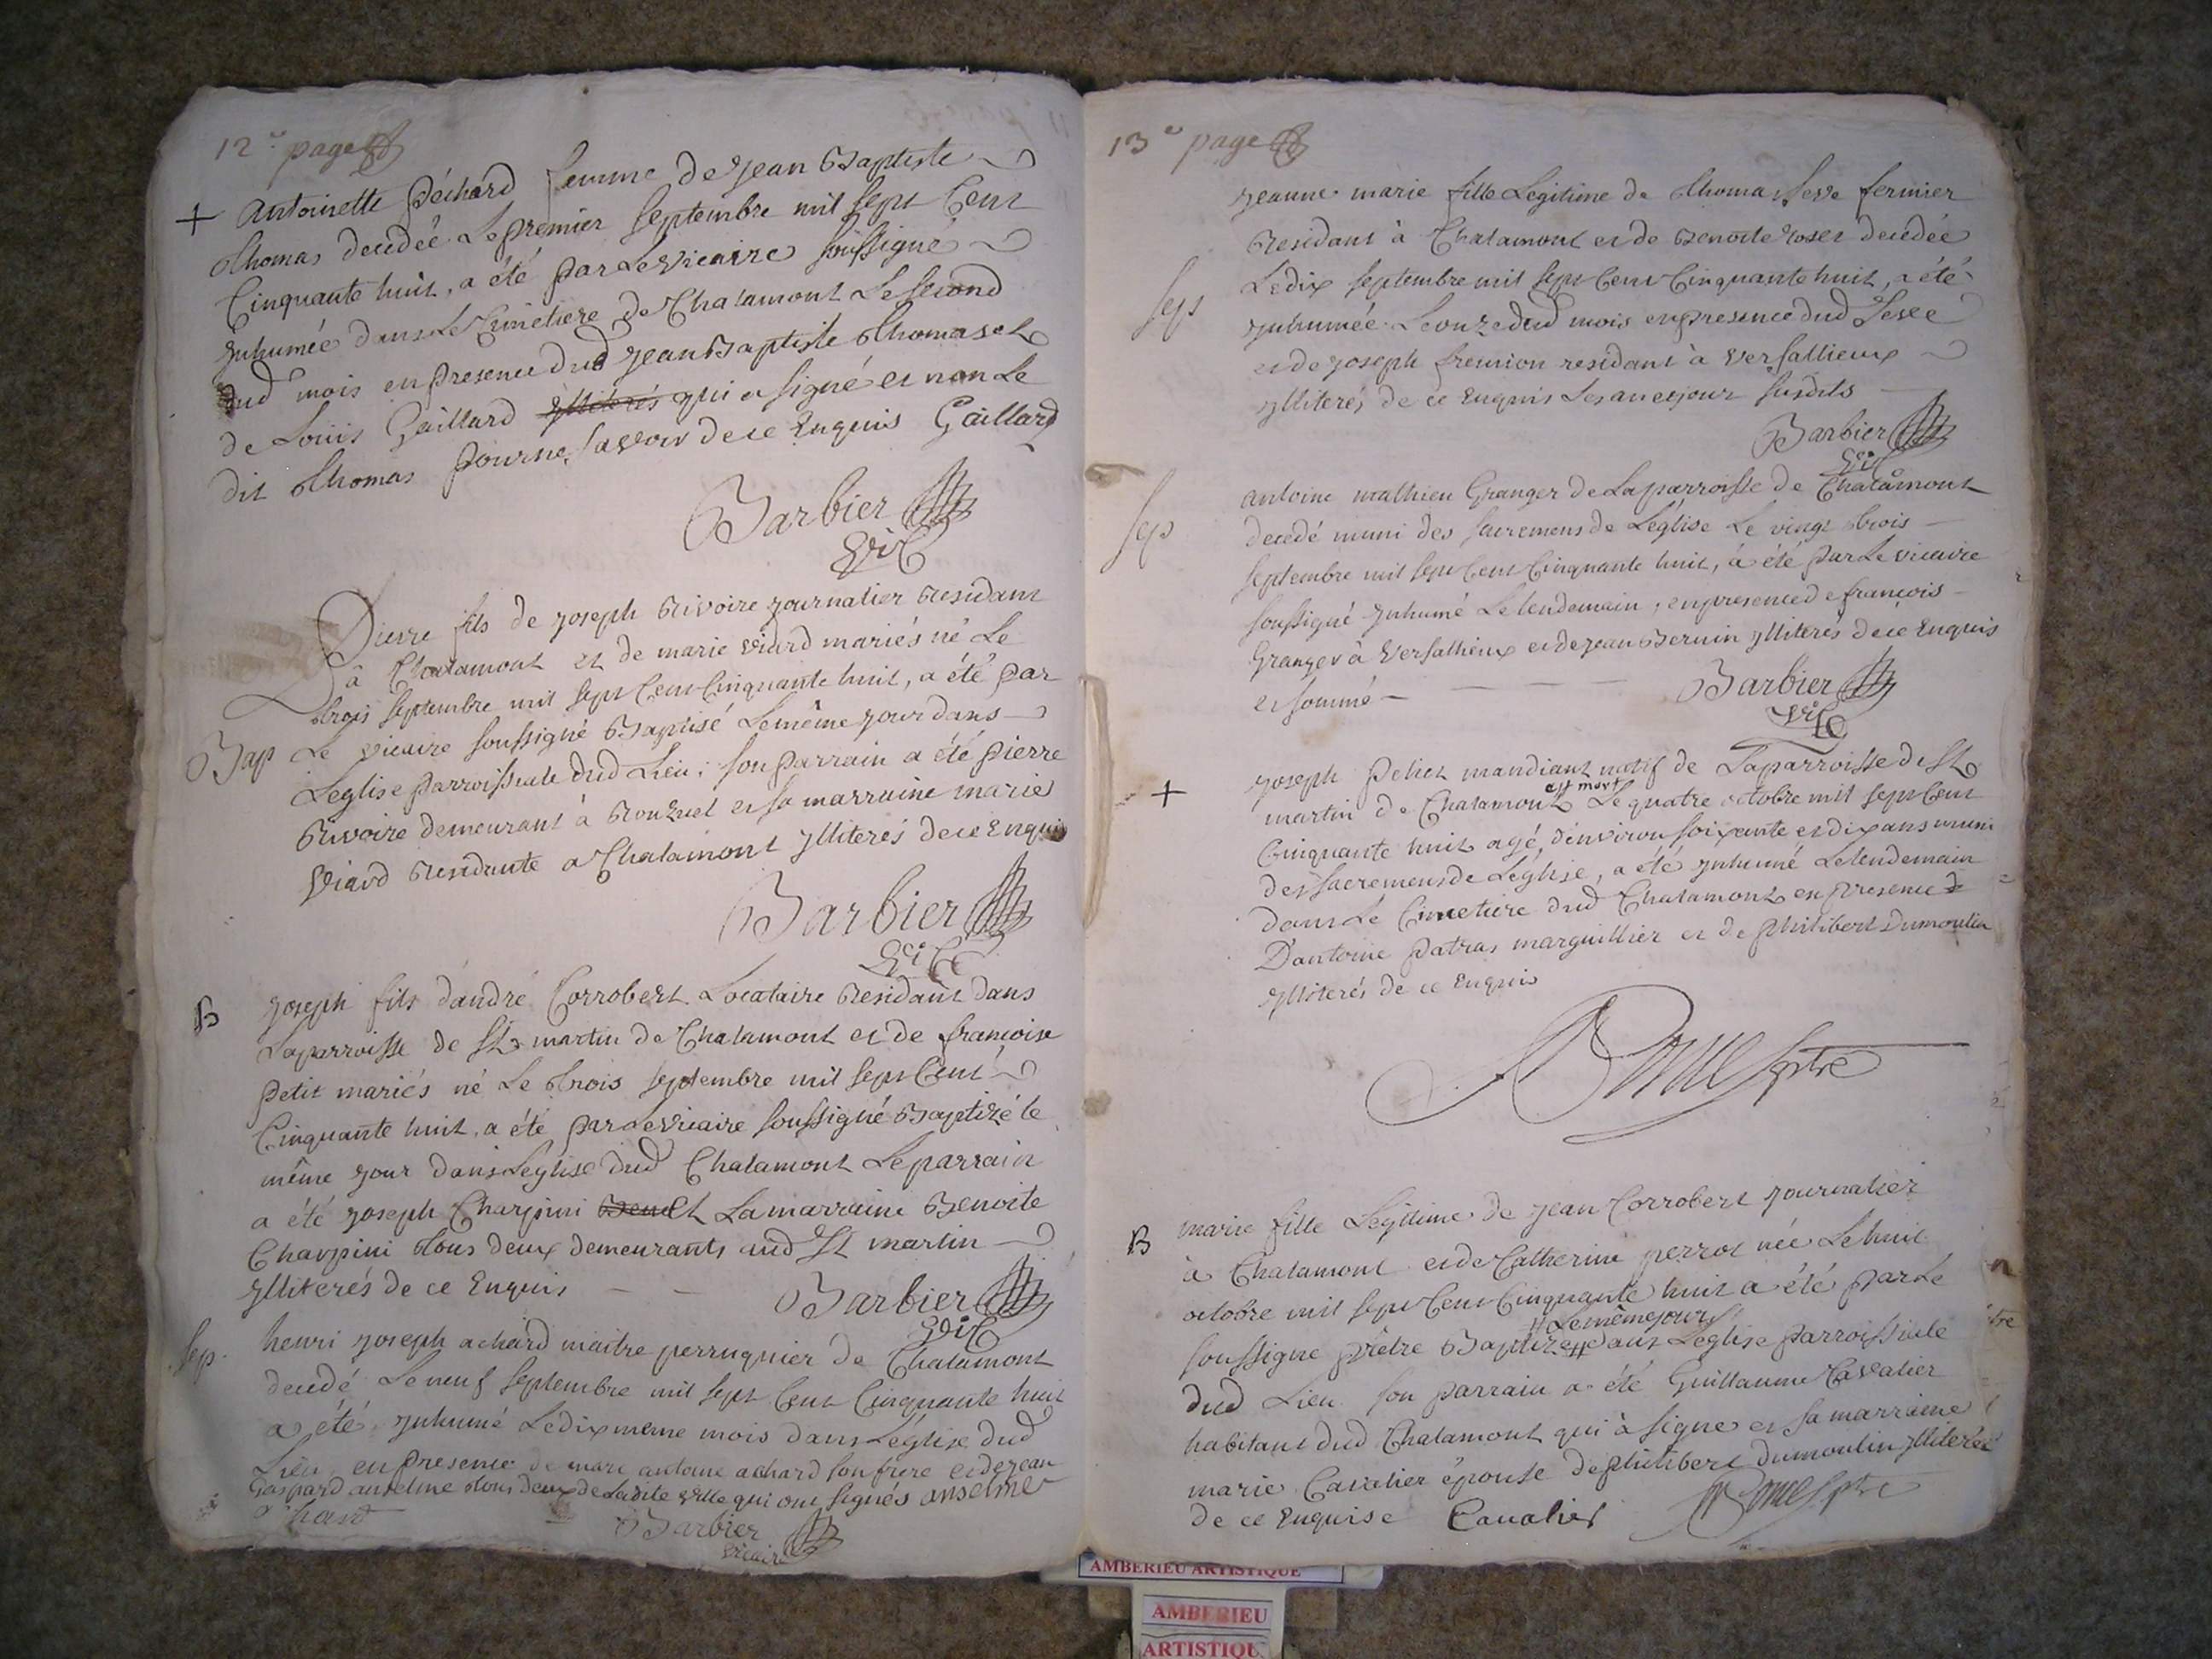 12e page
+ Antoinette Péchard femme de Jean Baptiste
Thomas decedée Le premier Septembre mil sept Cent
Cinquante huit, a été par Le vicaire soussigné
Inhumée dans Le Cimetiere de Chalamont Le second
dud mois en presence dud Jean Baptiste Thomas et
de Loüis Gaillard yllitérés qui a signé et non Le
dit Thomas pour ne savoir de ce Enquis Gaillard
Barbier
vic
Pierre fils de Joseph Rivoire journalier Residant
à Chalamont et de marie viard mariés né Le
trois Septembre mil sept Cent Cinquante huit, a été par
Bap Le vicaire soussigné Baptisé Le même jour dans
L'eglise parroissiale dud Lieu ; son parrain a été pierre
Rivoire demeurant à Ronzuel et sa marraine marie
Viard Residante a Chalamont ylliterés de ce Enquis
Barbier
Vic
B Joseph fils d'andré Corrobert Locataire Residant dans
La parroisse de St martin de Chalamont et de françoise
petit mariés né Le trois septembre mil sept Cent
Cinquante huit, a été par Le vicaire soussigné Baptizé le
même jour dans L'église dud Chalamont Le parrain
a été Joseph Charpini Benet La marraine Benoite
Charpini tous deux demeurants aud St martin
ylliterés de ce Enquis
Barbier
Vic
Sep. henri joseph achard maitre perruquier de Chalamont
decedé Le neuf Septembre mil sept Cent Cinquante huit
a été Inhumé Le dix meme mois dans L'église dud
Lieu en presence de marc antoine achard son frere et de jean
Gaspard anselme tous deux de Ladite ville qui ont signés anselme
achard
Barbier
vicaire
13e page
Jeanne marie fille Legitime de Thomas Seve fermier
Residant à Chalamont et de Benoite roset decedée
Sep Le dix septembre mil sept Cent Cinquante huit, a été
Inhumée Le onze dud mois en presence dud Seve
et de joseph fremion residant à versallieux
ylliterés de ce Enquis Les an et jour susdits
Barbier
Vic
Sep antoine mathieu Granger de La parroisse de Chalamont
decedé muni des sacremens de L'église Le vingt trois
septembre mil sept Cent Cinquante huit, a été par Le vicaire
soussigné Inhumé Le lendemain, en presence de françois
Granger à Versallieux et de jean Bernin ylliterés de ce Enquis
et sommé
Barbier
vic
+ joseph peliet mandiant natif de La parroisse de St
martin de Chalamont est mort Le quatre octobre mil sept Cent
Cinquante huit agé d'environ soixante et dix ans muni
des sacremens de L'église, a été Inhumé Le lendemain
dans Le Cimetiere dud Chalamont en presence
D'antoine patras marguillier et de philibert Dumoulin
ylliterés de ce Enquis
ptre
B marie fille Legitime de jean Corrobert journalier
à Chalamont et de Catherine perrot née Le huit
octobre mil sept Cent Cinquante huit a été par Le
soussigné prêtre Baptizée Le même jour dans L'eglise parroissiale
dud Lieu son parrain a été Guillaume Cavalier
habitant dud Chalamont qui à signe et sa marraine
marie Cavalier épouse de philibert dumoulin ylliterée
de ce Enquise Cavalier ptre
AMBERIEU ARTISTIQUE
AMBERIEU
ARTISTIQU